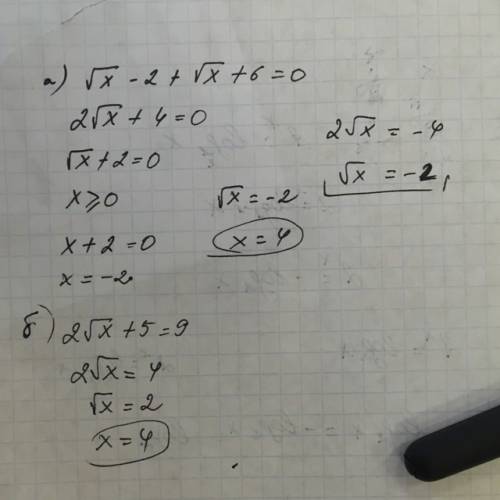 а) √x - 2 + √x + 6 = 0
2√x + 4 = 0
√x + 2 = 0
x ⩾ 0
x + 2 = 0
x = -2
√x = -2
x = 4
2√x = -4
√x = -2,
б) 2√x + 5 = 9
2√x = 4
√x = 2
x = 4